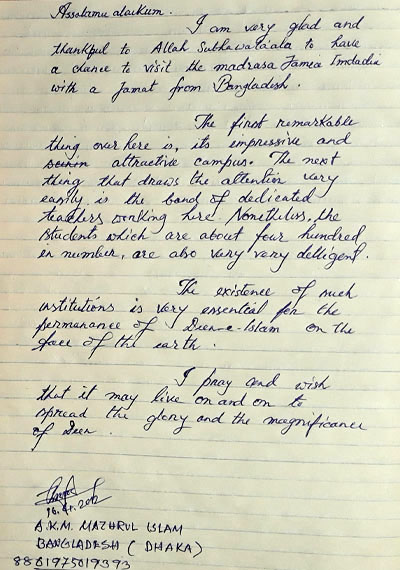 Assalamu alaikum.
I am very glad and
thankful to Allah Subhawata'ala to have
a chance to visit the madrasa Jamea Imdadia
with a Jamat from Bangladesh.
The first remarkable
thing over here is, its empressive and
attractive campus. The next
thing that draws the attention very
easily is the band of dedicated
teachers working here. Nonetheless, the
students which are about four hundred
in number, are also very very delligent.
The existence of such
institutions is very essential for the
permanance of Deen-e-Islam on the
face of the earth.
I pray and wish
that it may live on and on to
spread the glory and the magnificance
of Deen.
A.K.M. MAZHRUL ISLAM
BANGLADESH ( DHAKA )
8801975019393